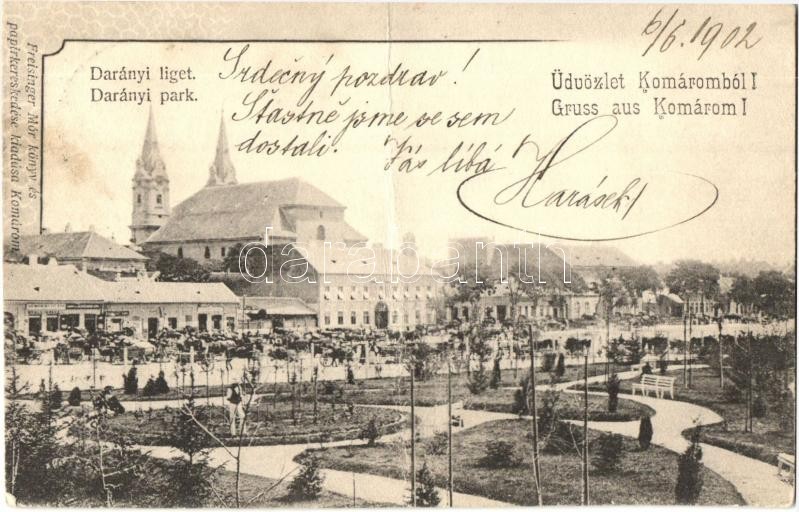 6/6. 1902
Darányi liget.
Darányi park.
Üdvözlet Komáromból!
Gruss aus Komárom!
Srdečný pozdrav!
Šťastně jsme se sem
dostali. Vás líbá
Harásek
Freisinger Mór könyv és
papirkereskedése kiadása Komárom
darabanth